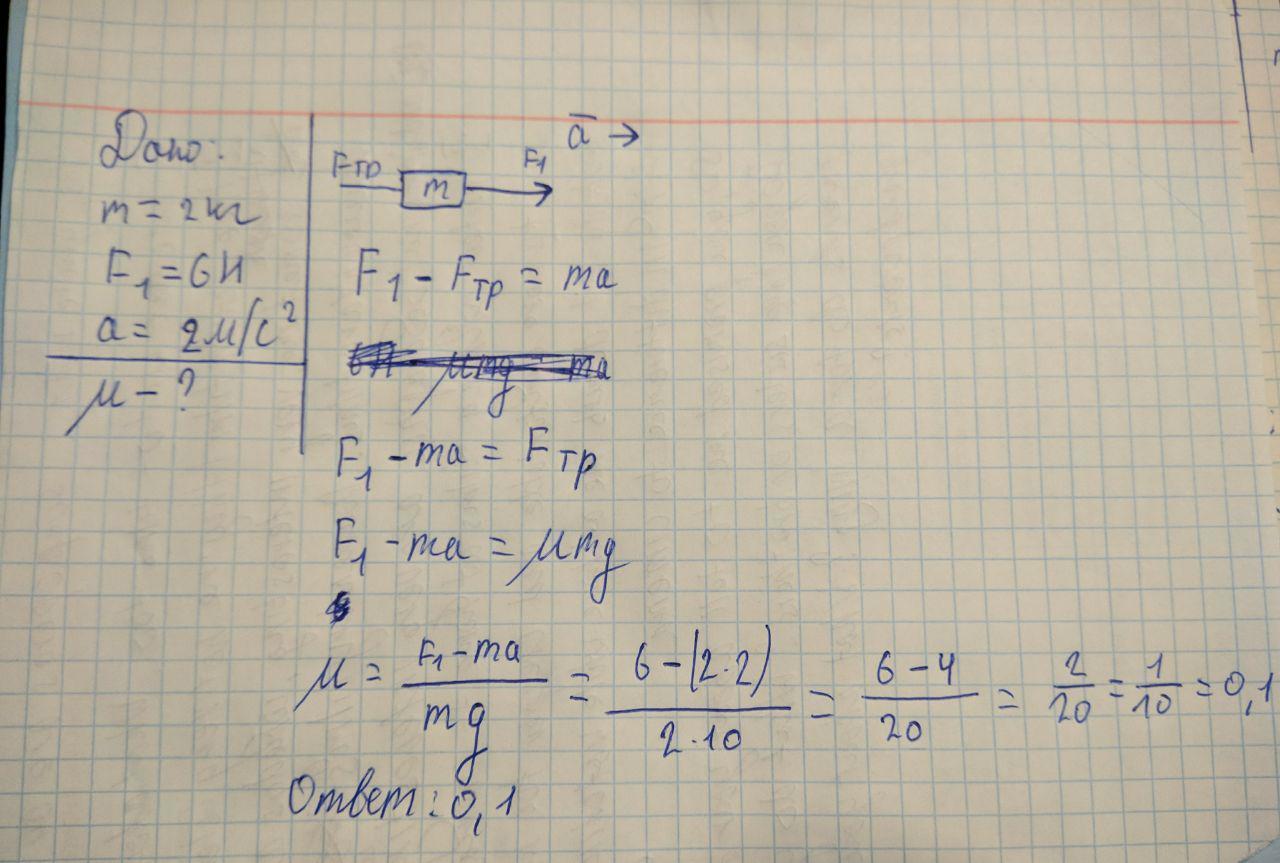 Дано:
m = 2 кг
F₁ = 6 Н
a = 2 м/с²
μ - ?
a̅ →
Fтр m F₁
F₁ - Fтр = ma
F₁ - ma = Fтр
F₁ - ma = μmg
μ = (F₁ - ma)/(mg) = (6 - (2·2))/(2·10) = (6 - 4)/20 = 2/20 = 1/10 = 0,1
Ответ: 0,1